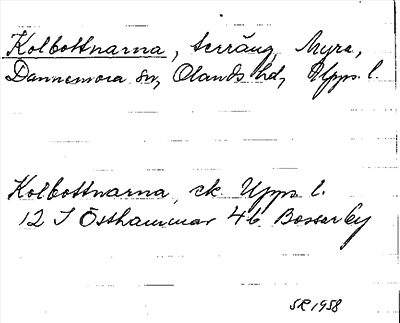 Kolbottnarna, terräng, Myra,
Dannemora sn, Olands hd, Upps. l.
Kolbottnarna, ek Upps. l.
12 I Östhammar 4b Bossarby
SR 1958